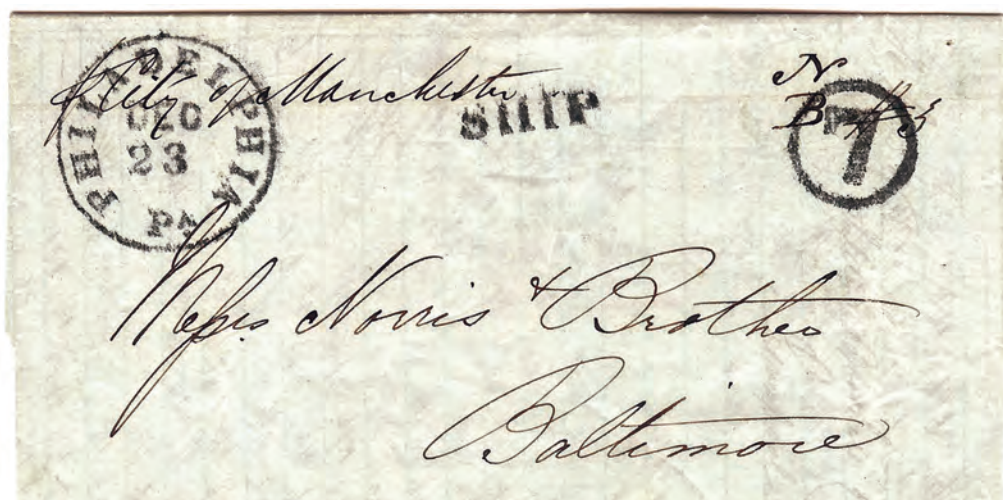 PHILADELPHIA
DEC
23
PA
City of Manchester
SHIP
N
B
7
Messrs Norris & Brother
Baltimore